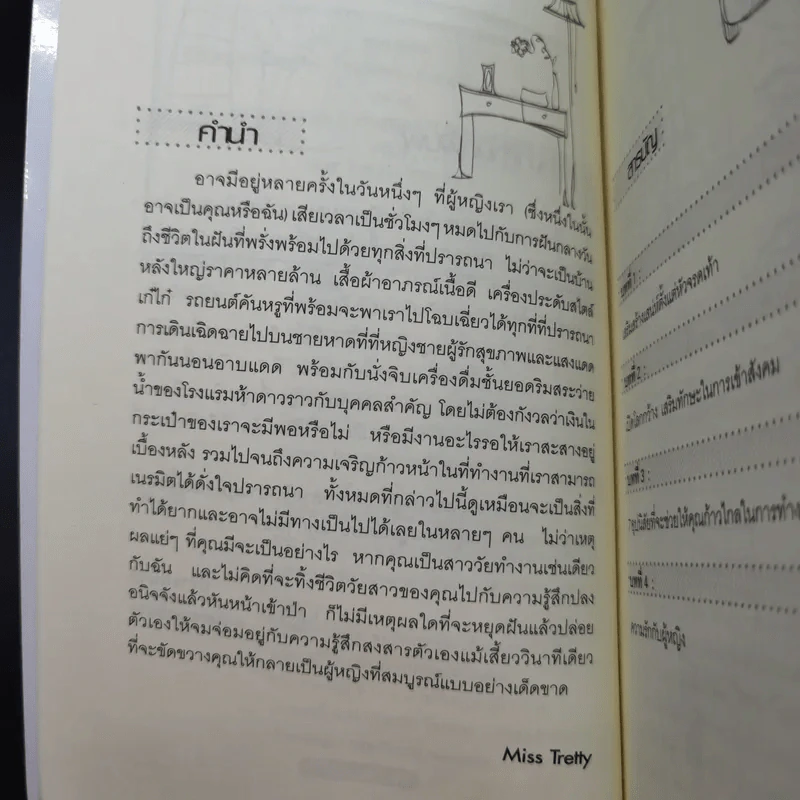 คำนำ
อาจมีอยู่หลายครั้งในวันหนึ่งๆ ที่ผู้หญิงเรา (ซึ่งหนึ่งในนั้น
อาจเป็นคุณหรือฉัน) เสียเวลาเป็นชั่วโมงๆ หมดไปกับการฝันกลางวัน
ถึงชีวิตในฝันที่พรั่งพร้อมไปด้วยทุกสิ่งที่ปรารถนา ไม่ว่าจะเป็นบ้าน
หลังใหญ่ราคาหลายล้าน เสื้อผ้าอาภรณ์เนื้อดี เครื่องประดับสไตล์
เก๋ไก๋ รถยนต์คันหรูที่พร้อมจะพาเราไปโฉบเฉี่ยวได้ทุกที่ที่ปรารถนา
การเดินเฉิดฉายไปบนชายหาดที่ที่หญิงชายผู้รักสุขภาพและแสงแดด
พากันนอนอาบแดด พร้อมกับนั่งจิบเครื่องดื่มชั้นยอดริมสระว่าย
น้ำของโรงแรมห้าดาวราวกับบุคคลสำคัญ โดยไม่ต้องกังวลว่าเงินใน
กระเป๋าของเราจะมีพอหรือไม่ หรือมีงานอะไรรอให้เราสะสางอยู่
เบื้องหลัง รวมไปจนถึงความเจริญก้าวหน้าในที่ทำงานที่เราสามารถ
เนรมิตได้ดั่งใจปรารถนา ทั้งหมดที่กล่าวไปนี้ดูเหมือนจะเป็นสิ่งที่
ทำได้ยากและอาจไม่มีทางเป็นไปได้เลยในหลายๆ คน ไม่ว่าเหตุ
ผลแย่ๆ ที่คุณมีจะเป็นอย่างไร หากคุณเป็นสาววัยทำงานเช่นเดียว
กับฉัน และไม่คิดที่จะทิ้งชีวิตวัยสาวของคุณไปกับความรู้สึกปลง
อนิจจังแล้วหันหน้าเข้าป่า ก็ไม่มีเหตุผลใดที่จะหยุดฝันแล้วปล่อย
ตัวเองให้จมจ่อมอยู่กับความรู้สึกสงสารตัวเองแม้เสี้ยววินาทีเดียว
ที่จะขัดขวางคุณให้กลายเป็นผู้หญิงที่สมบูรณ์แบบอย่างเด็ดขาด
Miss Tretty
สารบัญ
บทที่ 1 :
เสริมสร้างเสน่ห์ตั้งแต่หัวจรดเท้า
บทที่ 2 :
เปิดโลกกว้าง เสริมทักษะในการเข้าสังคม
บทที่ 3 :
อุปนิสัยที่จะช่วยให้คุณก้าวไกลในการทำงาน
บทที่ 4 :
ความรักกับผู้หญิง